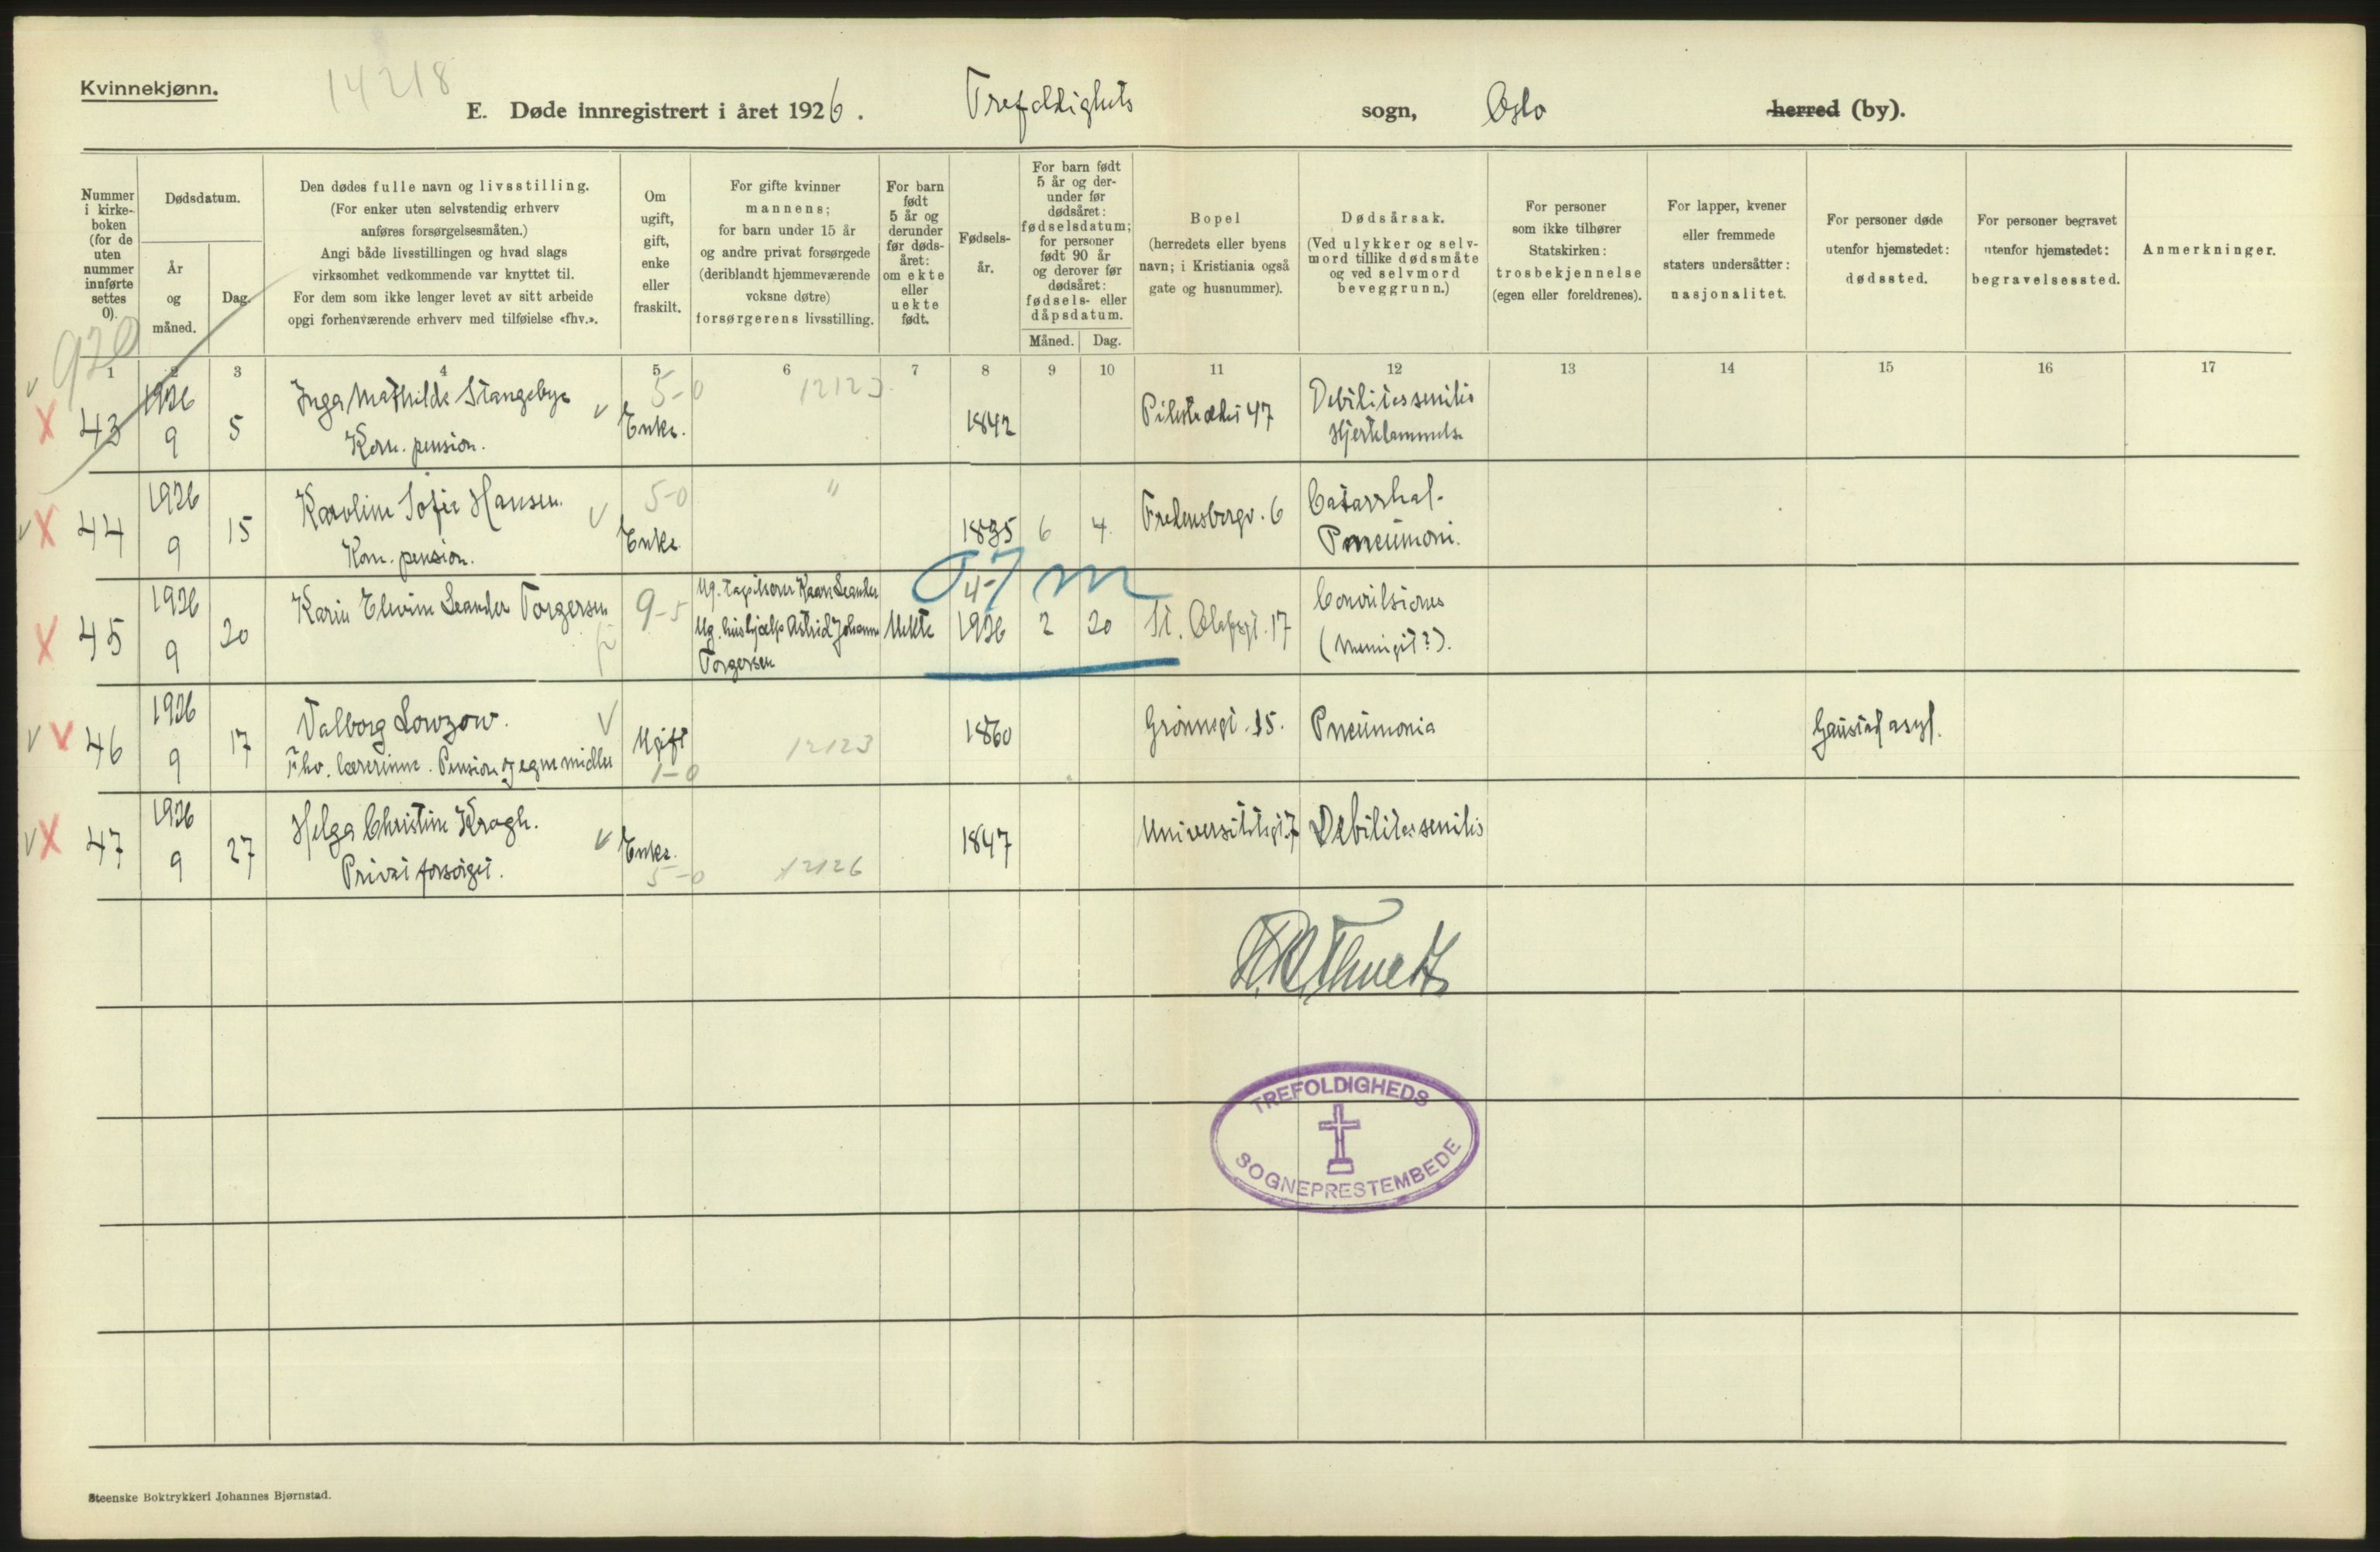 Kvinnekjønn.
14218
E. Døde innregistrert i året 1926. Trefoldighets sogn, Oslo herred (by).
Nummer i kirke- boken (for de uten nummer innførte settes 0).
Dødsdatum.
År og måned.
Dag.
Den dødes fulle navn og livsstilling.
(For enker uten selvstendig erhverv
anføres forsørgelsesmåten.)
Angi både livsstillingen og hvad slags
virksomhet vedkommende var knyttet til.
For dem som ikke lenger levet av sitt arbeide
opgi forhenværende erhverv med tilføielse «fhv.».
Om ugift, gift, enke eller fraskilt.
For gifte kvinner
mannens;
for barn under 15 år
og andre privat forsørgede
(deriblandt hjemmeværende
voksne døtre)
forsørgerens livsstilling.
For barn født 5 år og derunder før døds- året: om ekte eller uekte født.
Fødsels- år.
For barn født 5 år og der- under før dødsåret: fødselsdatum; for personer født 90 år og derover før dødsåret: fødsels- eller dåpsdatum.
Måned. Dag.
Bopel
(herredets eller byens
navn; i Kristiania også
gate og husnummer).
Dødsårsak.
(Ved ulykker og selv-
mord tillike dødsmåte
og ved selvmord
beveggrunn.)
For personer
som ikke tilhører
Statskirken:
trosbekjennelse
(egen eller foreldrenes).
For lapper, kvener
eller fremmede
staters undersåtter:
nasjonalitet.
For personer døde
utenfor hjemstedet:
dødssted.
For personer begravet
utenfor hjemstedet:
begravelsessted.
Anmerkninger.
920
1 2 3 4 5 6 7 8 9 10 11 12 13 14 15 16 17
43 1926 9 5 Inga Mathilde Stangebye
Kom. pension.
5-0 Enke. 12123 1842 Pilestrædet 47 Debilitas senilis
Hjertelammelse
44 1926 9 15 Karoline Sofie Hansen.
Kom. pension.
5-0 Enke " 1835 6 4 Fredensborgv. 6 Catarrhal-
Pneumoni.
45 1926 9 20 Karin Elvine Leander Torgersen
9-5 Ug. tapetserer Kaare Leander
Ug. hushjælp Astrid Johanne
Torgersen
Uekte 1926 2 20 St. Olafsgt. 17 Convulsiones
(Meningit?).
07 m
46 1926 9 17 Valborg Lowzow.
Fhv. lærerinne. Pension og egne midler
Ugift 1-0 12123 1860 Grønnegt. 15. Pneumonia Gaustad asyl.
47 1926 9 27 Helga Christine Kragh.
Privat forsørget.
Enke. 5-0 12126 1847 Universitetsgt. 7 Debilitas senilis
TREFOLDIGHEDS
SOGNEPRESTEMBEDE
Steenske Boktrykkeri Johannes Bjørnstad.